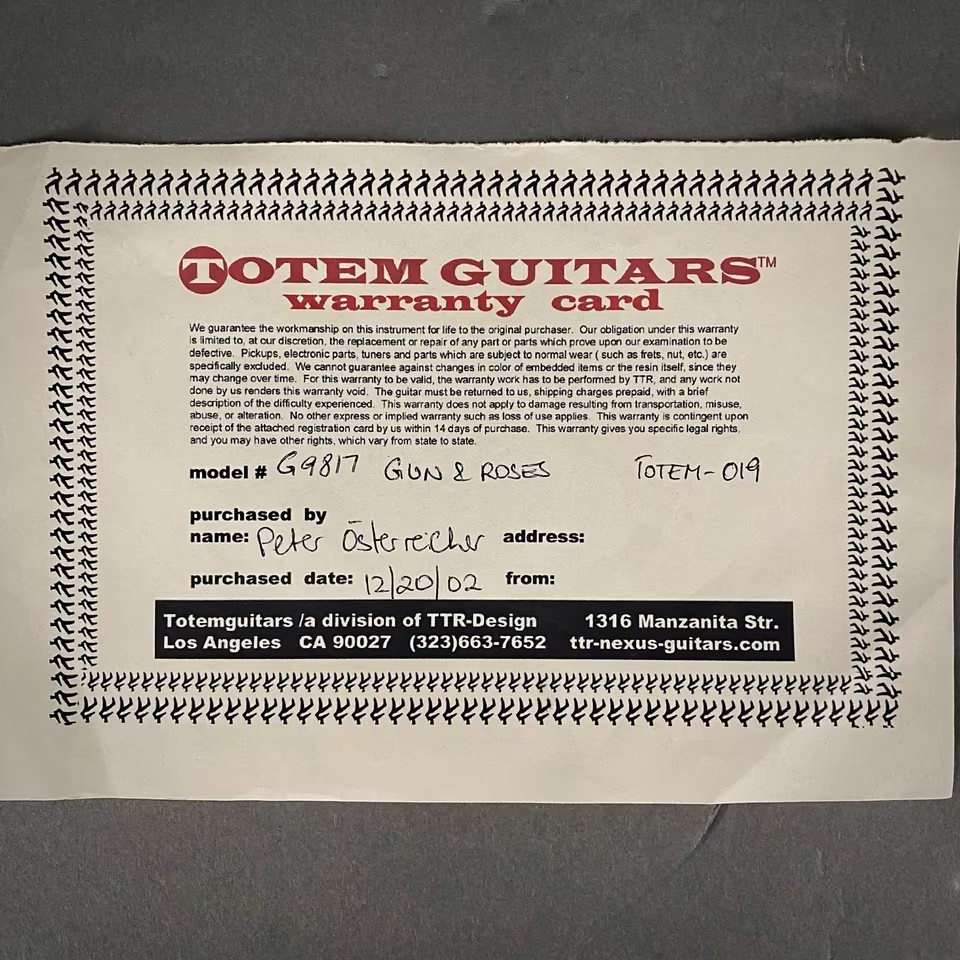 TOTEM GUITARS™
warranty card
We guarantee the workmanship on this instrument for life to the original purchaser. Our obligation under this warranty
is limited to, at our discretion, the replacement or repair of any part or parts which prove upon our examination to be
defective. Pickups, electronic parts, tuners and parts which are subject to normal wear ( such as frets, nut, etc.) are
specifically excluded. We cannot guarantee against changes in color of embedded items or the resin itself, since they
may change over time. For this warranty to be valid, the warranty work has to be performed by TTR, and any work not
done by us renders this warranty void. The guitar must be returned to us, shipping charges prepaid, with a brief
description of the difficulty experienced. This warranty does not apply to damage resulting from transportation, misuse,
abuse, or alteration. No other express or implied warranty such as loss of use applies. This warranty is contingent upon
receipt of the attached registration card by us within 14 days of purchase. This warranty gives you specific legal rights,
and you may have other rights, which vary from state to state.
model # G9817 GUN & ROSES TOTEM-019
purchased by
name: Peter Österreicher address:
purchased date: 12/20/02 from:
Totemguitars /a division of TTR-Design 1316 Manzanita Str.
Los Angeles CA 90027 (323)663-7652 ttr-nexus-guitars.com